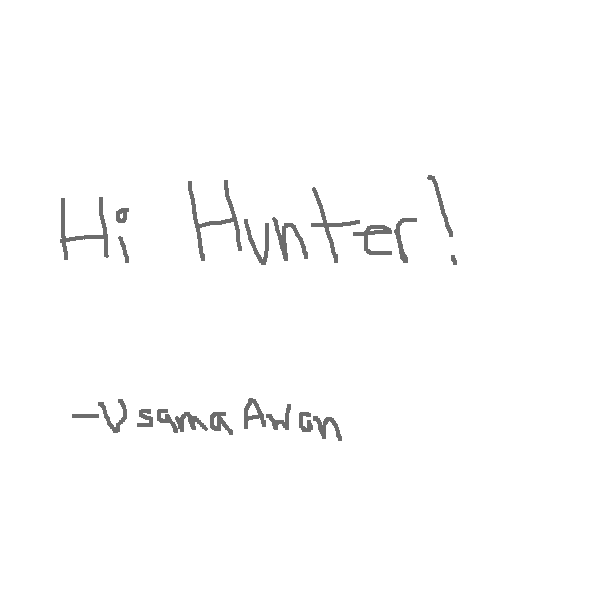 Hi Hunter!
-Usama Awan